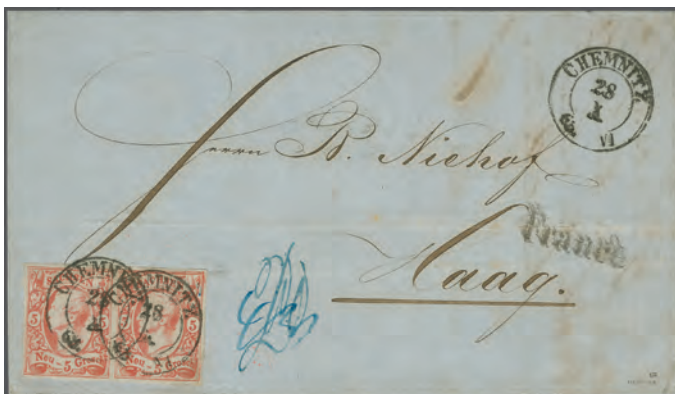 CHEMNITZ
28
X
63
VI
Herrn B. Niehof
Franco
Haag.
CHEMNITZ
28
CHEMNITZ
28
5
5
Neu-5.Grosch.
Neu-5.Grosch.